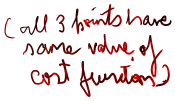 (all 3 points have
same value of
cost function)